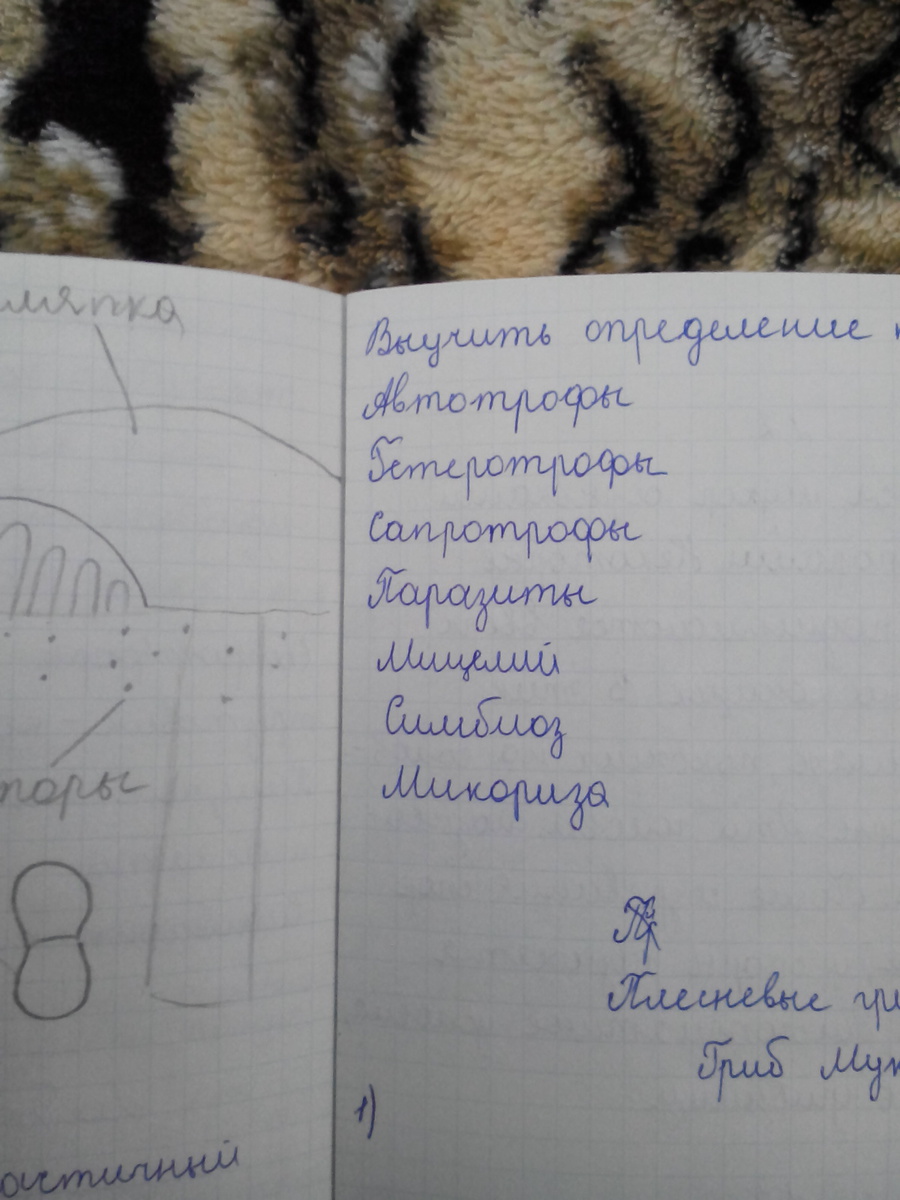 шляпка
споры
Выучить определение
Автотрофы
Гетеротрофы
Сапротрофы
Паразиты
Мицелий
Симбиоз
Микориза
Плесневые
Гриб
1)